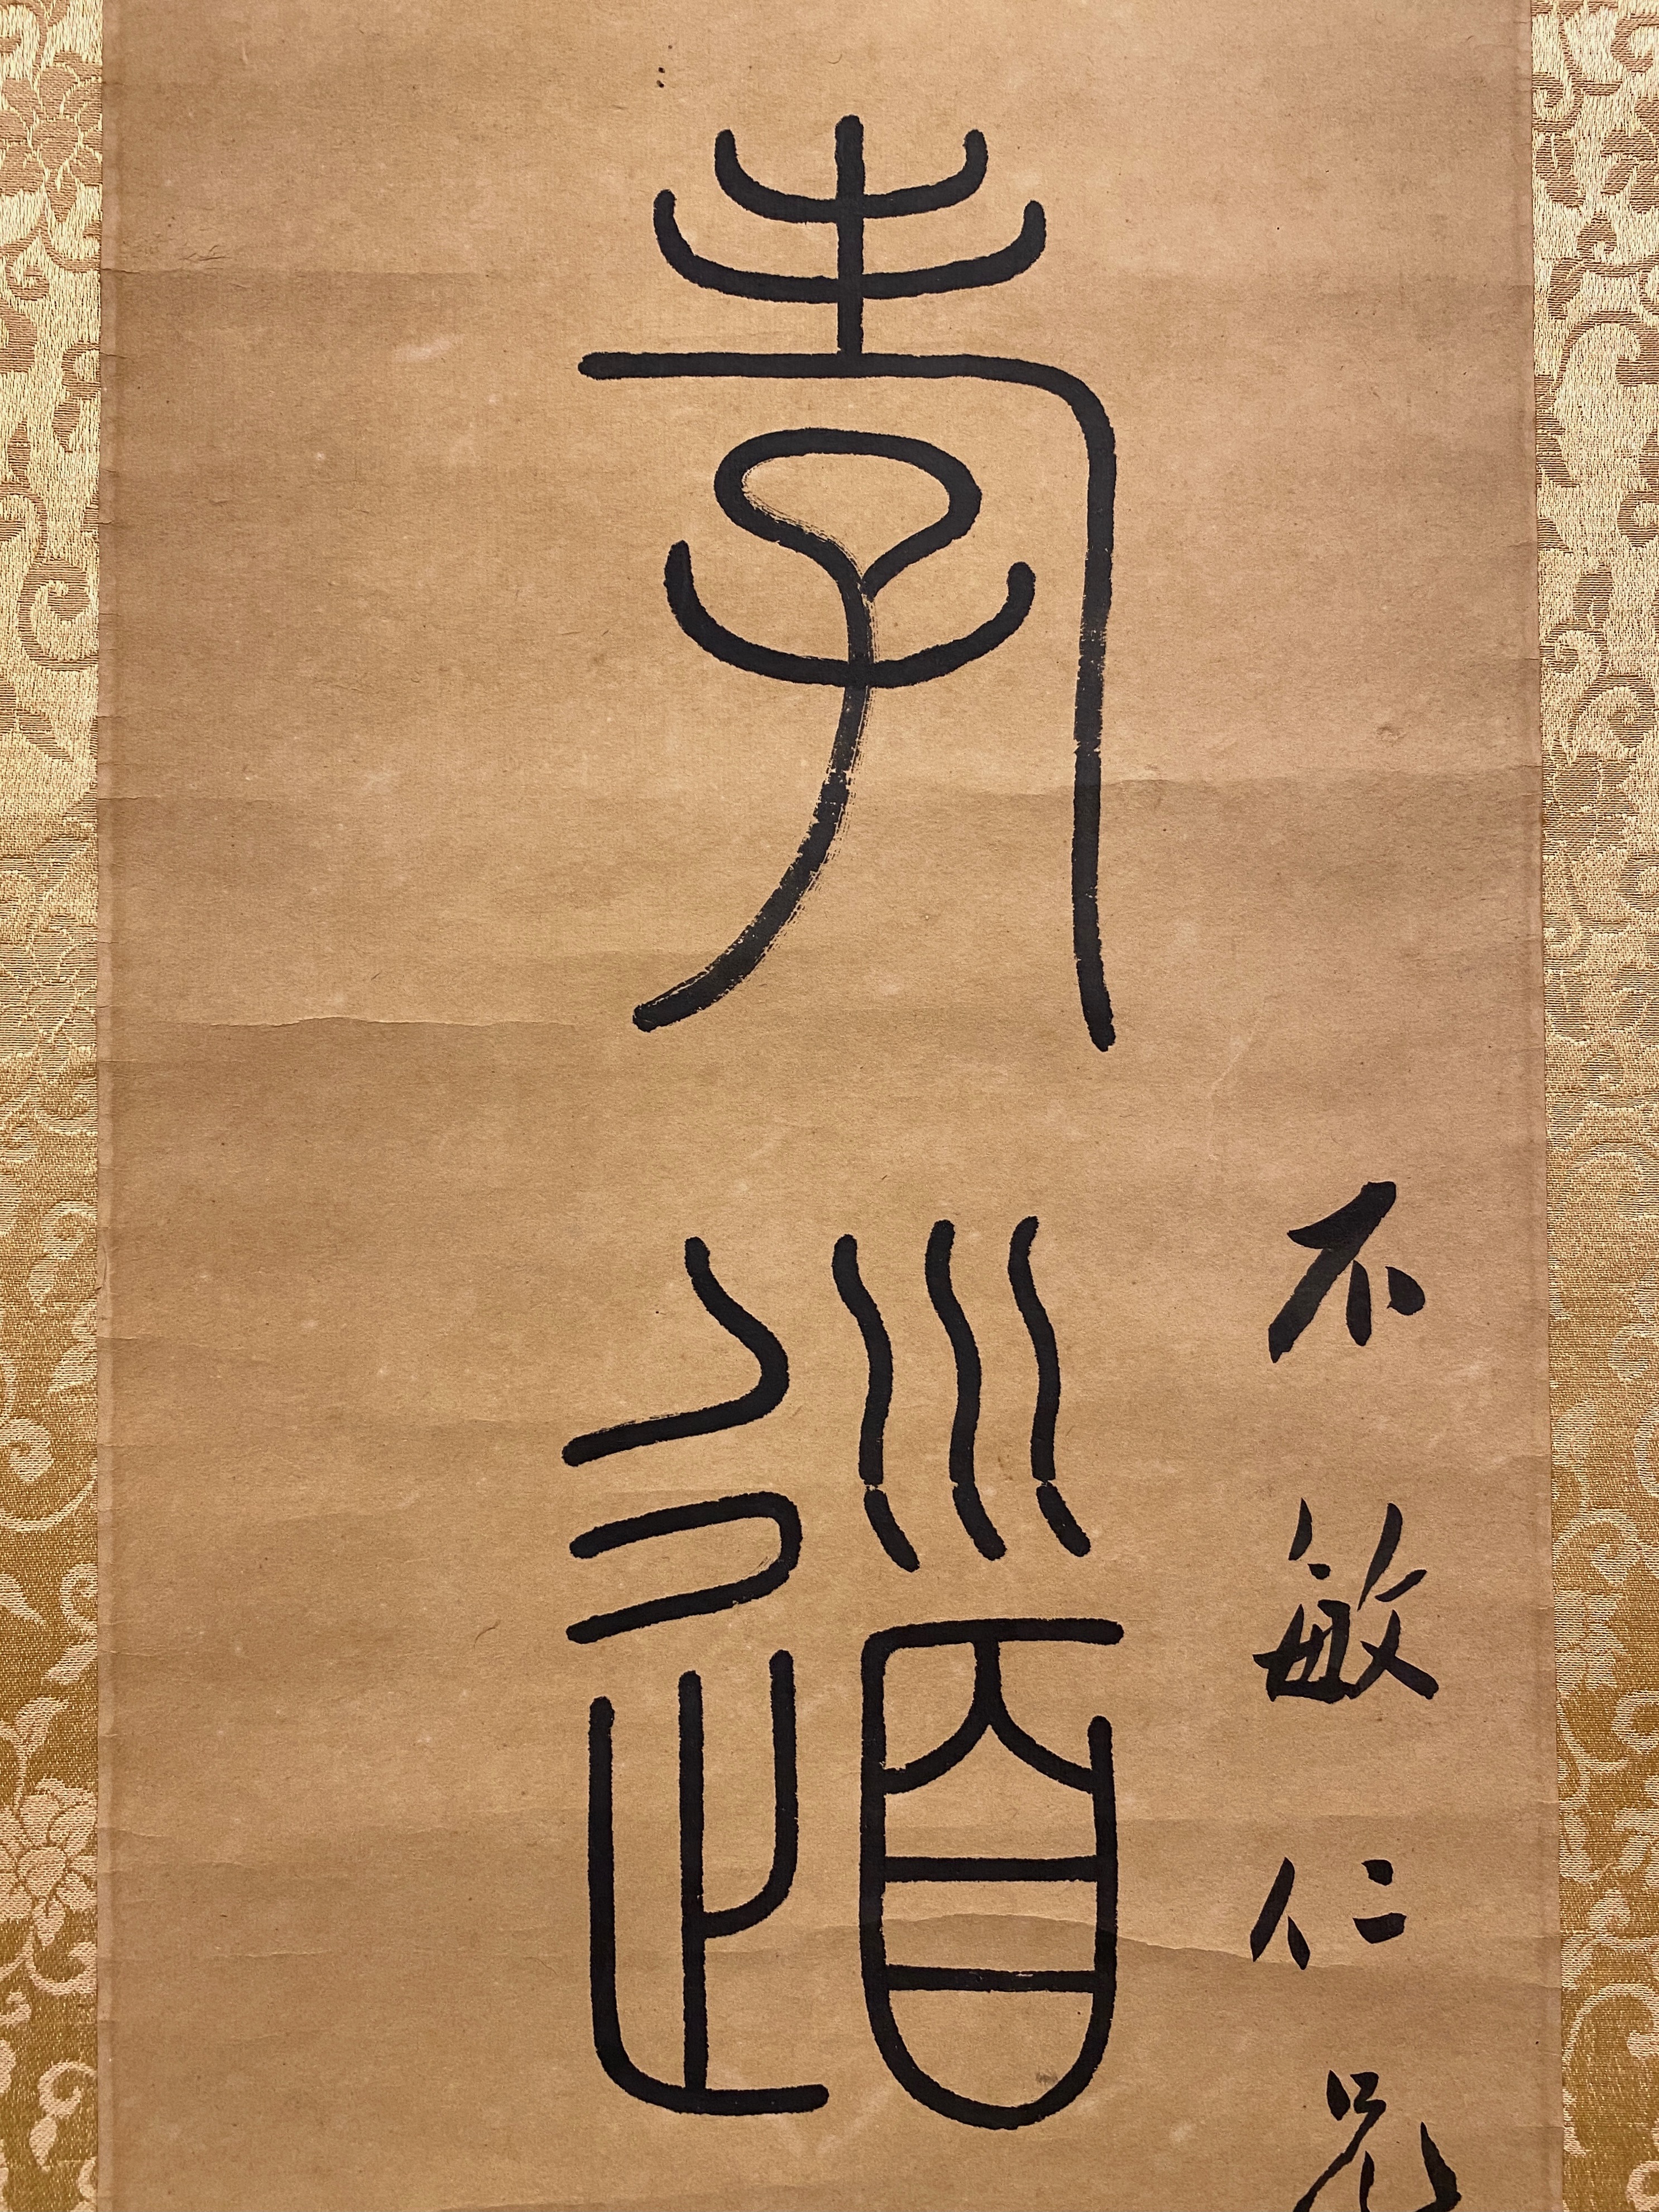 不敏仁兄
孝道